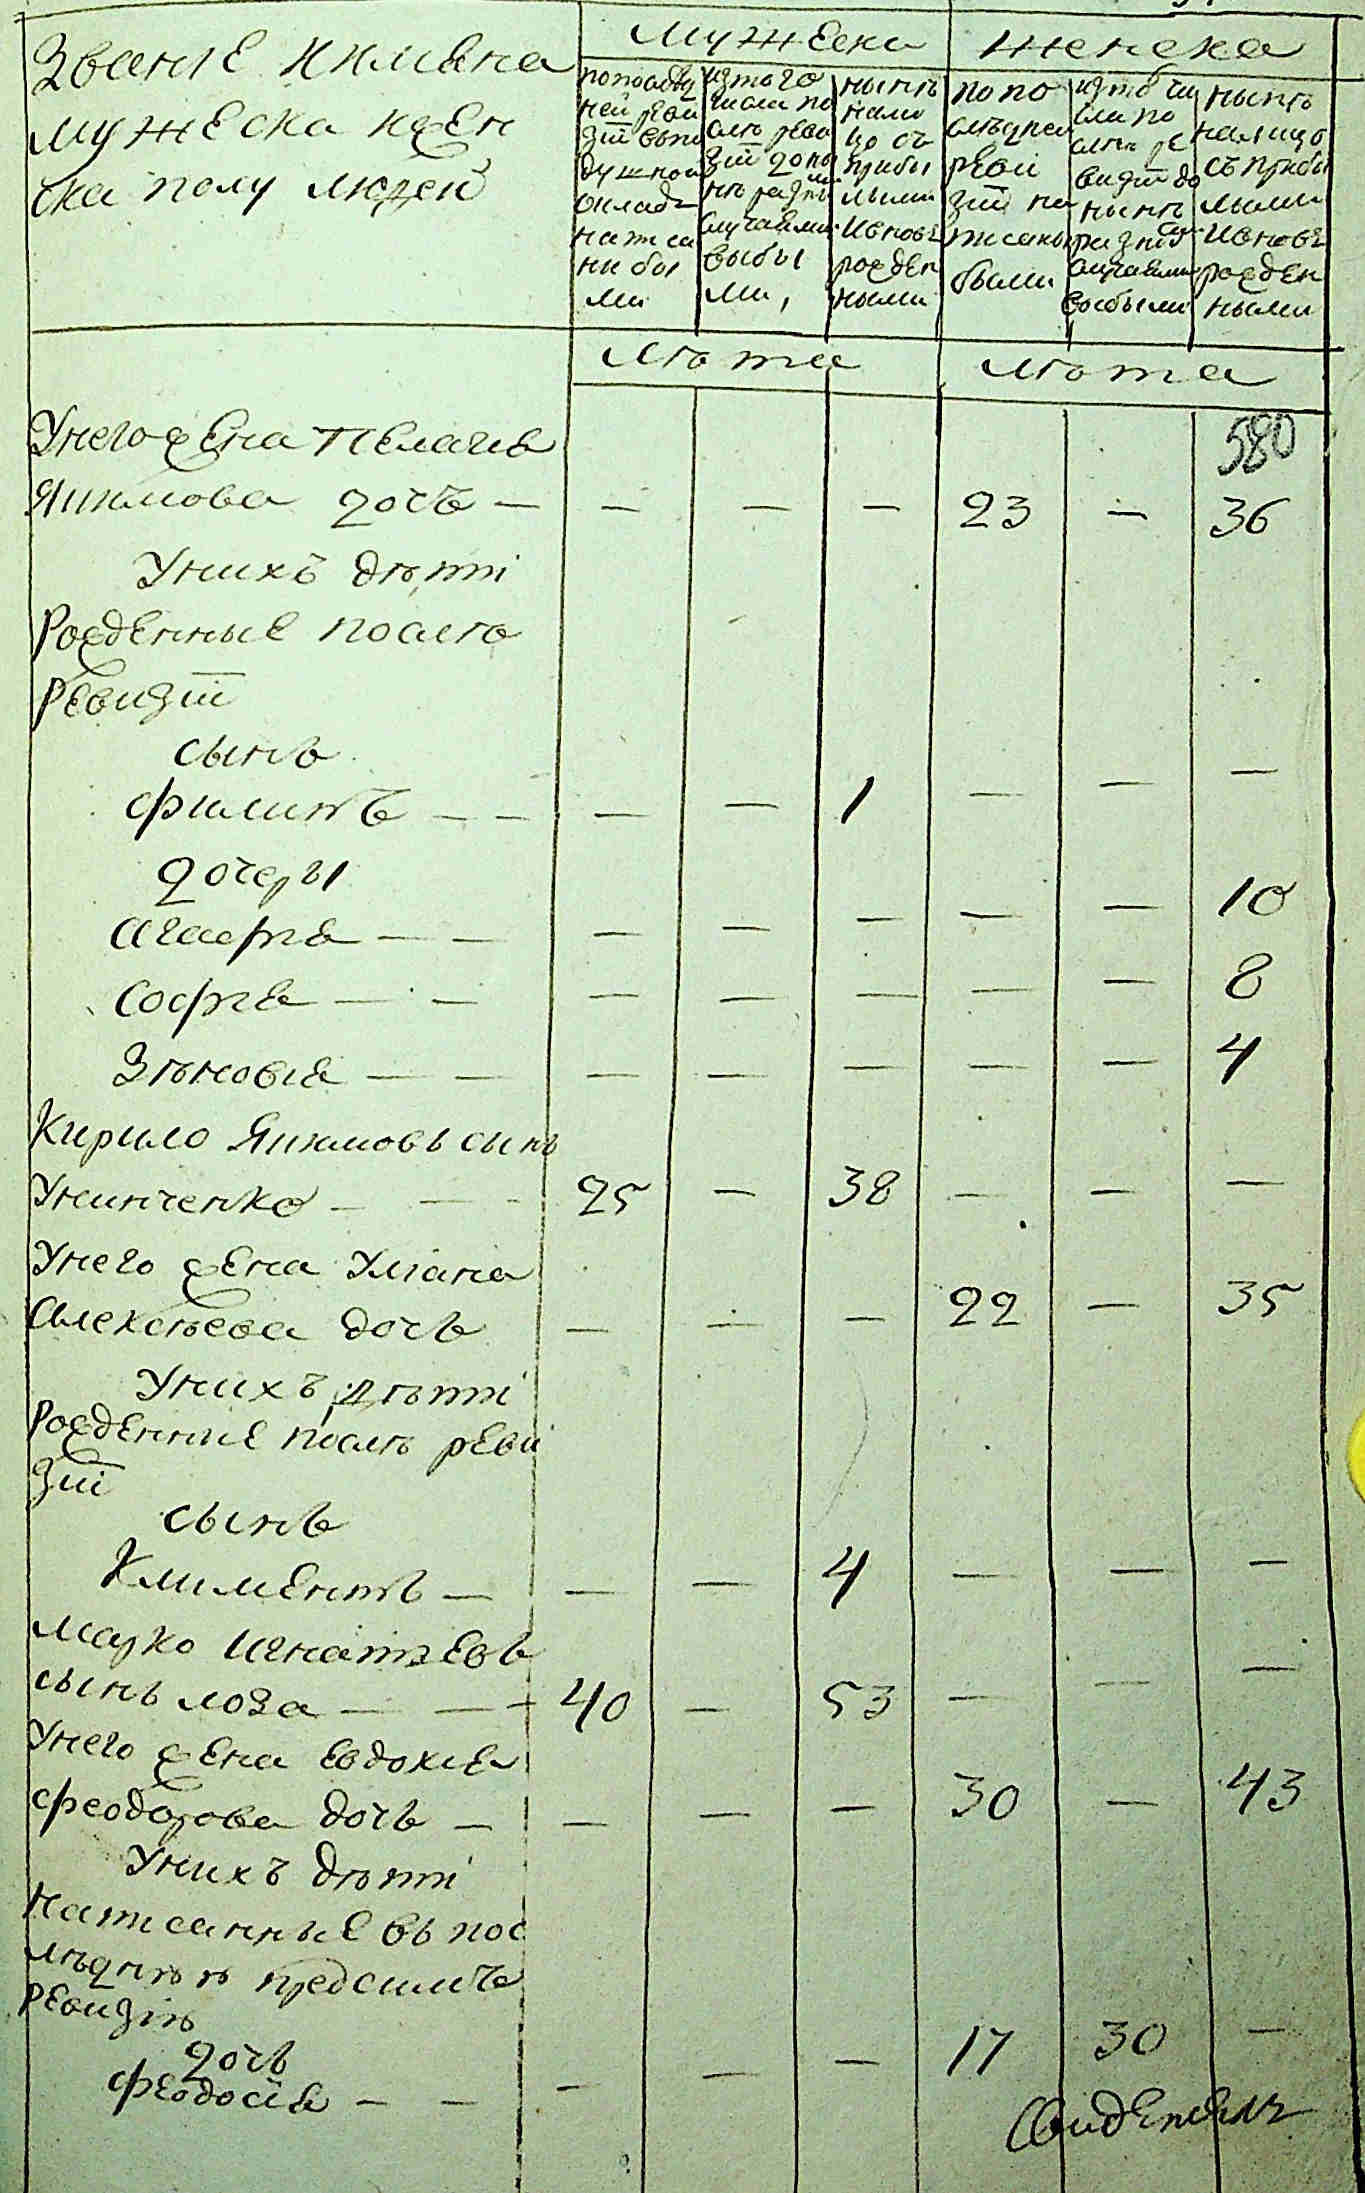 Званіе ꙵ имѣна
мужеска ꙵ жен
ска полу людей
мужеска
женска
по послѣд
ней реви
зіи въ по
душной
окладъ
написа
ны бы
ли
изъ того
числа по
слѣ реви
зіи до ны
нѣ разны
ми
случаями
выбы
ли,
нынѣ
нали
цо съ
прибы
лыми
и вновь
рожден
ными
по по
слѣдней
реви
зіи на
писаны
были
изъ то чи
сла по
слѣ ре
визіи до
нынѣ
разны
случаями
выбыли
нынѣ
на лицо
съ прибы
лыми
и вновь
рожден
ными
лѣта
лѣта
580
У него жена Пелагіе
Якимова дочь — — — — 23 — 36
У нихъ дѣти
Рожденные послѣ
Ревизіи
сынъ
Филипъ — — — — 1 — — —
дочеры
Агафіе — — — — — — — 10
Софіе — — — — — — — 8
Зѣновіе — — — — — — — 4
Кирило Якимовъ сынъ
Униченко — — 25 — 38 — — —
У него жена Уліана
Алексѣева дочь — — — 22 — 35
У нихъ дѣти
Рожденные послѣ реви
зіи
сынъ
Климентъ — — — 4 — — —
Марко Игнатьевъ
сынъ Лоза — — — 40 — 53 — — —
У него жена Евдокіе
Феодорова дочь — — — — 30 — 43
У нихъ дѣти
Написанные въ пос
лѣднѣй предъ симъ
Ревизіѣ
дочь
Феодосіе — — — — — 17 30 —
Свидетель